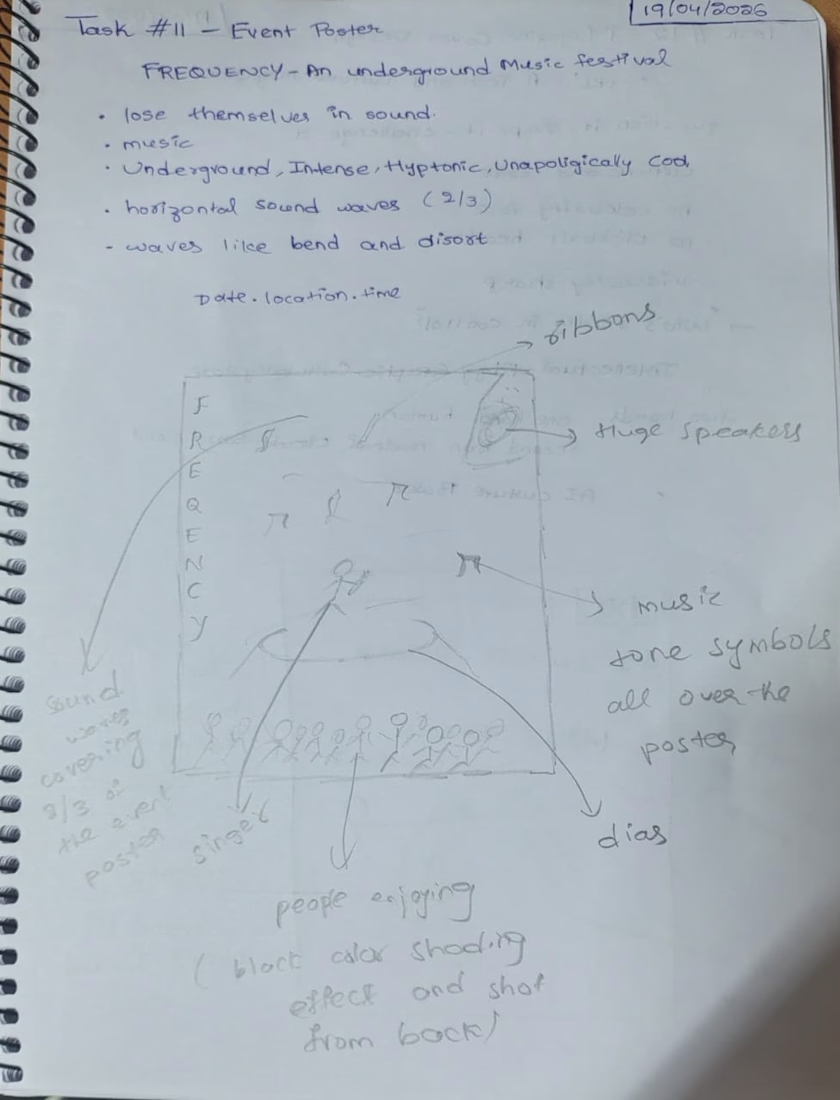 19/04/2026
Task #11 - Event Poster
FREQUENCY - An underground Music festival
• lose themselves in sound.
• music
• Underground, Intense, Hyptonic, Unapoligically Cool
• horizontal sound waves (2/3)
- waves like bend and disort
Date. location. time
ribbons
F
R
E
Q
E
N
C
Y
Huge speakers
music
tone symbols
all over the
poster
sound
waves
covering
2/3 of
the event
poster
singer
dias
people enjoying
(black color shading
effect and shot
from back)